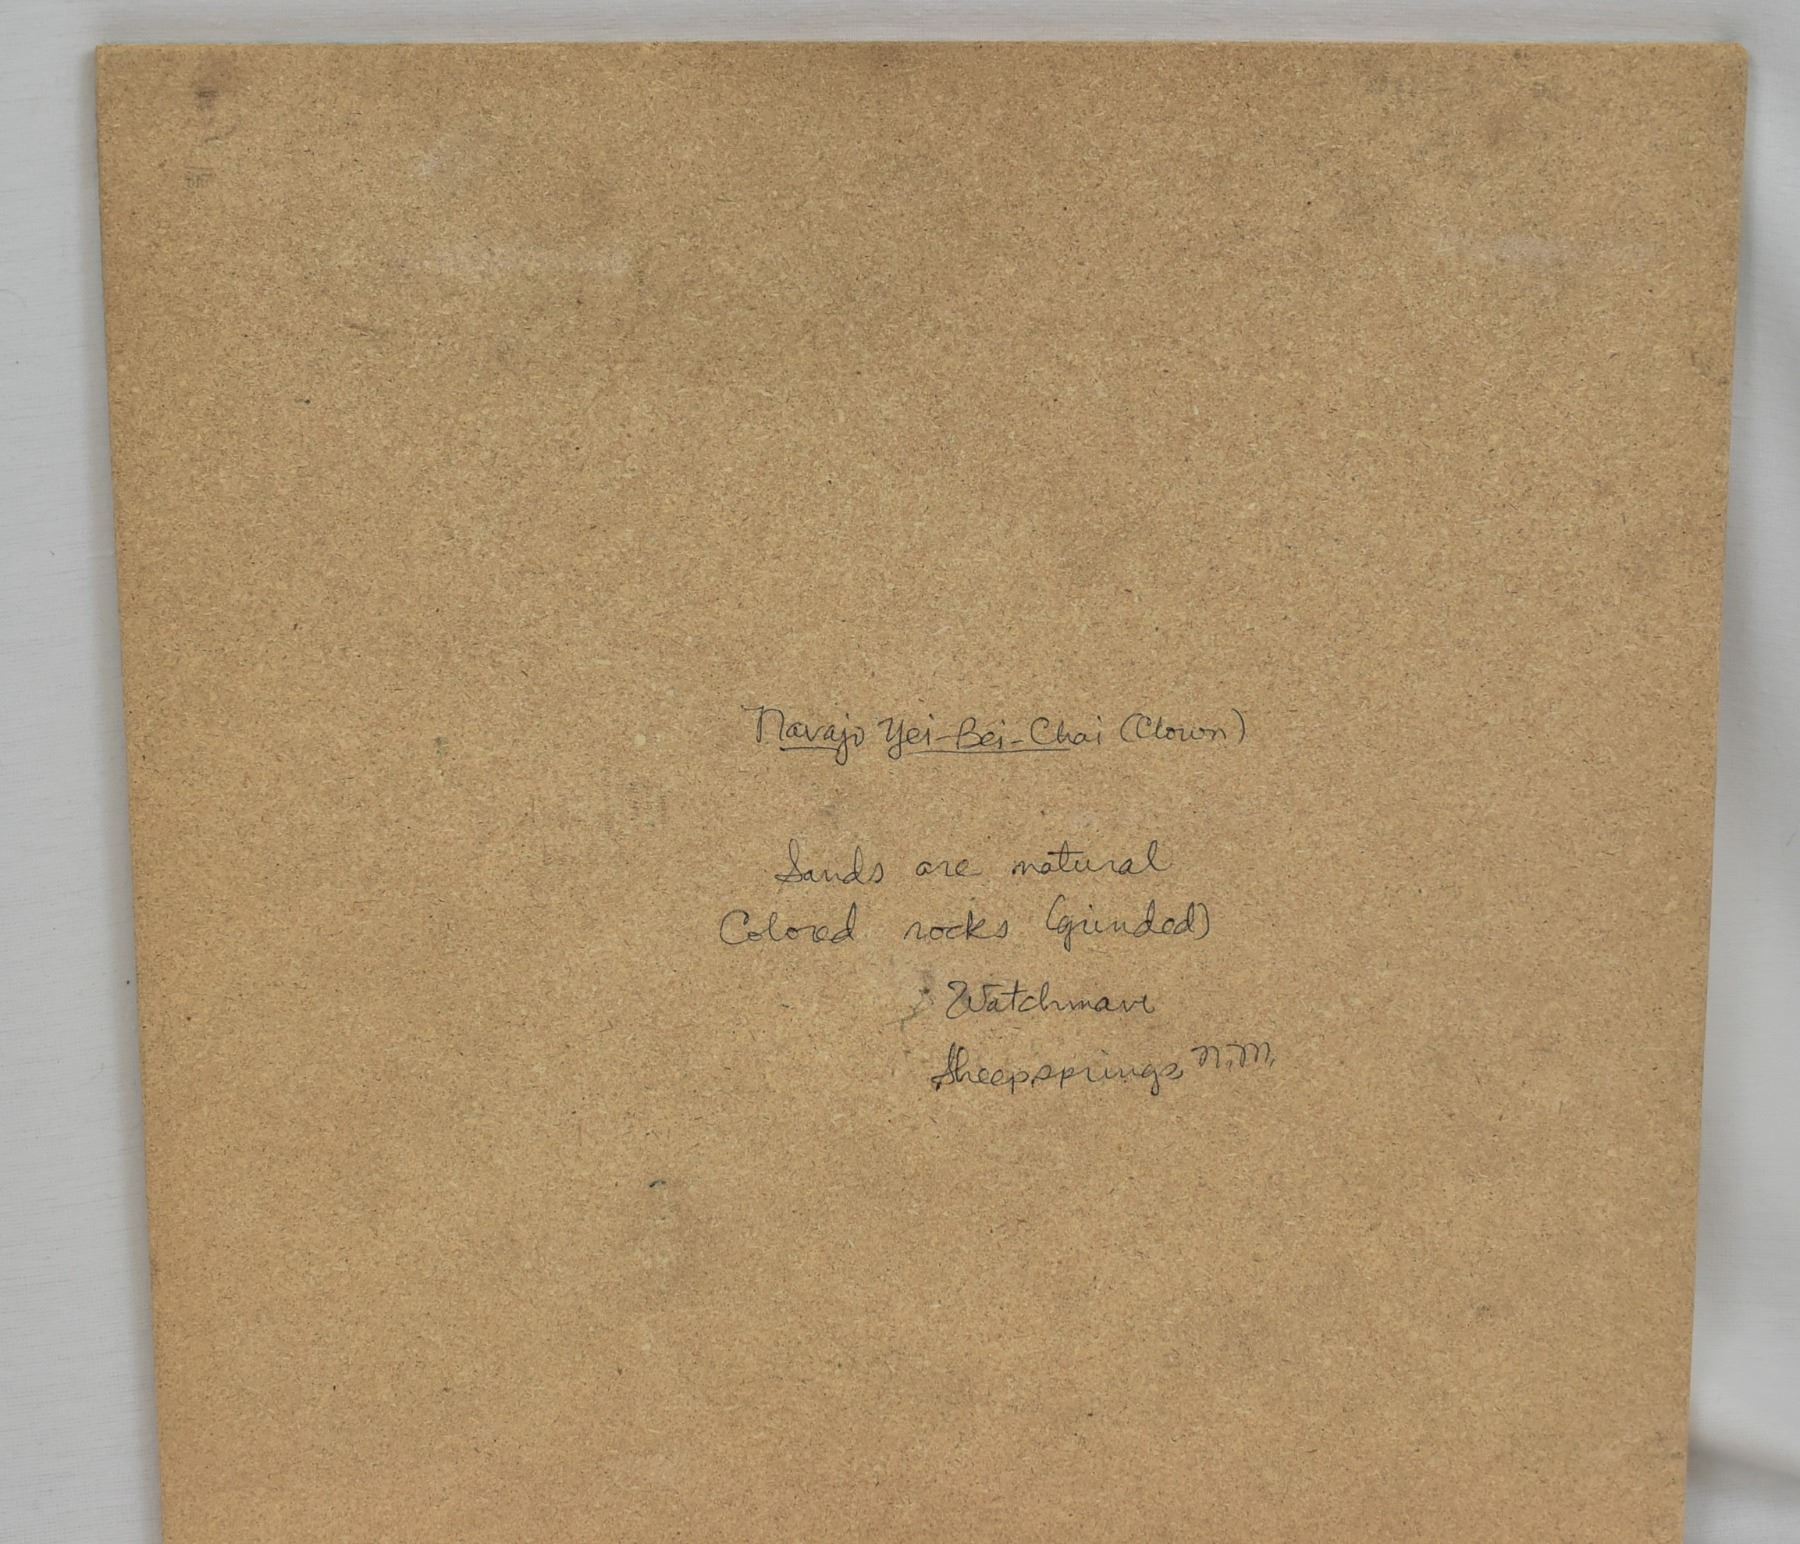 Navajo Yei-Bei-Chai (Clown)
Sands are natural
Colored rocks (grinded)
Watchman
Sheepsprings N.M.